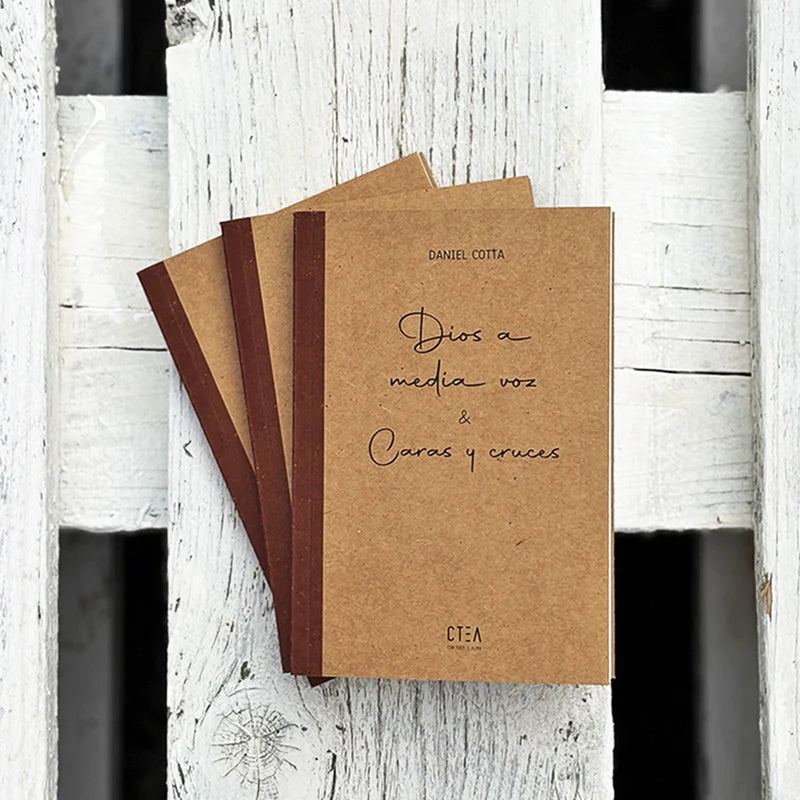 DANIEL COTTA
Dios a
media voz
&
Caras y cruces
CTEA